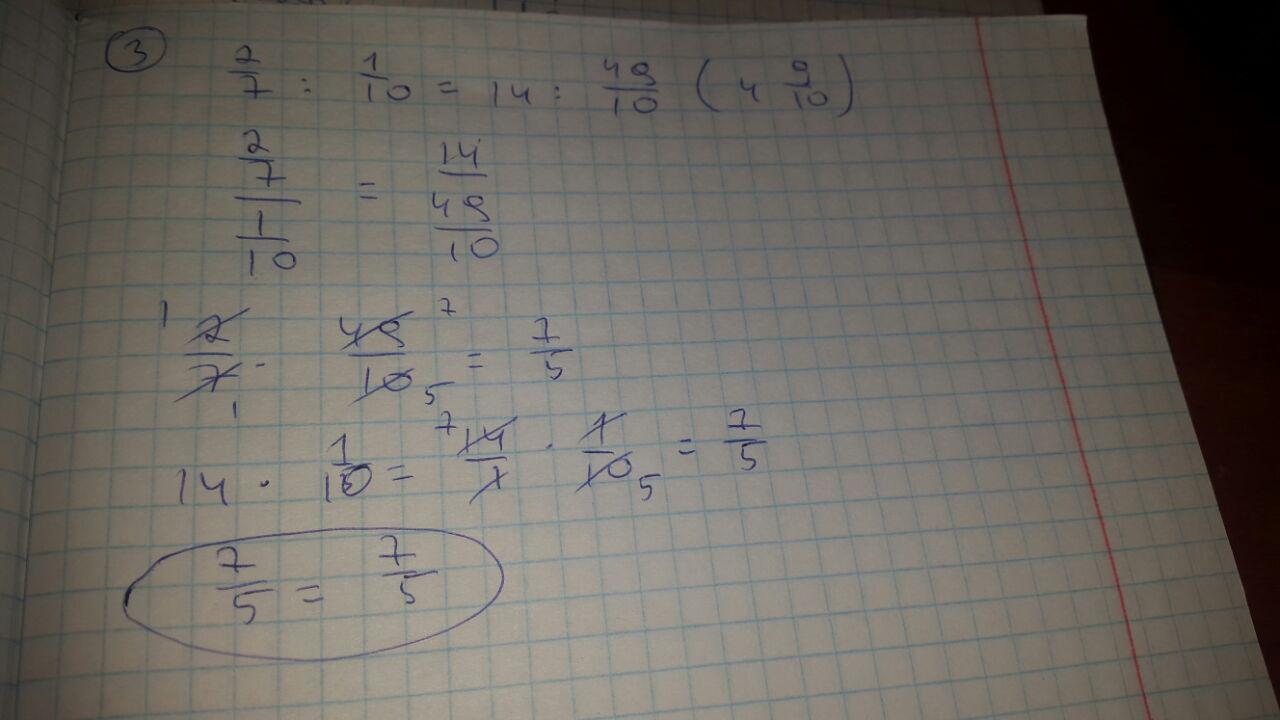 3
2/7 : 1/10 = 14 : 49/10 (4 9/10)
2/7 / 1/10 = 14 / 49/10
1 2/7 1 · 49/10 7 5 = 7/5
14 · 1/10 = 7 14/1 · 1/10 5 = 7/5
7/5 = 7/5